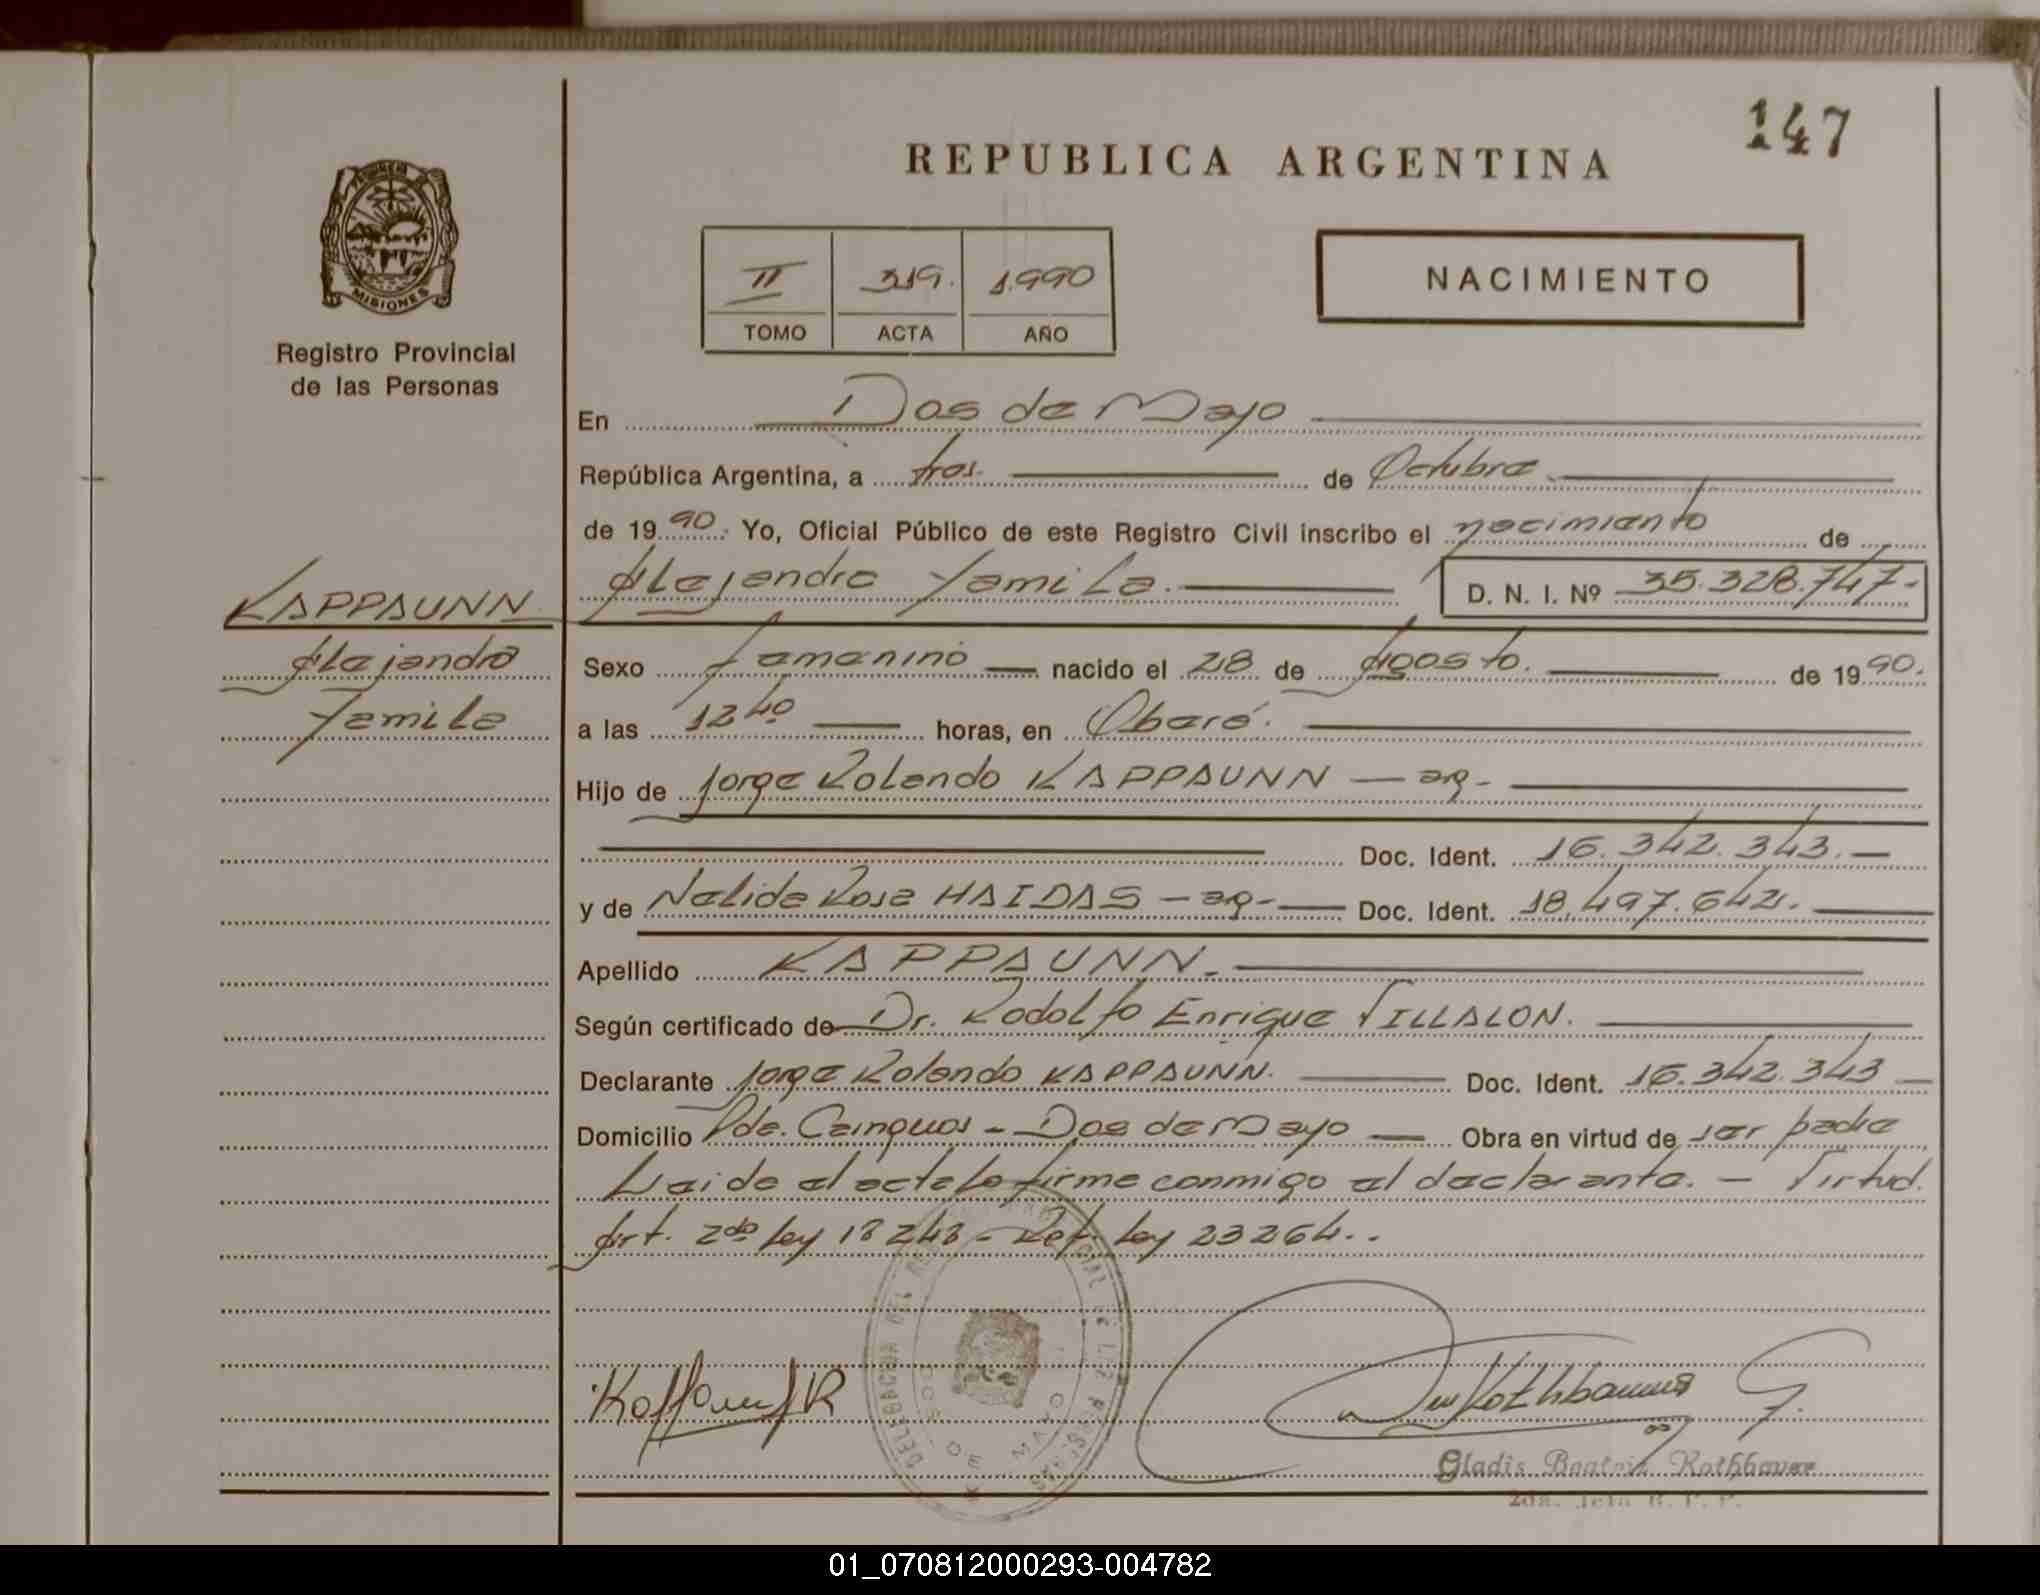 147
REPUBLICA ARGENTINA
MISIONES
Registro Provincial
de las Personas
II 319. 1.990
TOMO ACTA AÑO
NACIMIENTO
En Dos de Mayo
República Argentina, a tres. de Octubre.
de 1990. Yo, Oficial Público de este Registro Civil inscribo el nacimiento de
Alejandra Yamila. D. N. I. Nº 35.328.747-
KAPPAUNN
Alejandra
Yamila
Sexo femenino nacido el 28 de Agosto. de 1990.
a las 12 40 horas, en Oberá.
Hijo de Jorge Rolando KAPPAUNN — arg-
Doc. Ident. 16.342.343.—
y de Nelida Rosa HAIDAS — arg- Doc. Ident. 18.497.642.
Apellido KAPPAUNN.
Según certificado de Dr. Rodolfo Enrique VILLALON.
Declarante Jorge Rolando KAPPAUNN. Doc. Ident. 16.342.343
Domicilio Pde. Cainguas - Dos de Mayo Obra en virtud de ser padre
Leida el acta la firma conmigo el declarante. — Virtud.
Art. 2do ley 18248 - Ref. ley 23264..
DELEGACION DEL REGISTRO PROVINCIAL DE LAS PERSONAS
DOS DE MAYO
Gladis Beatriz Rothbauer
2da. Jefa R. P. P.
01_070812000293-004782